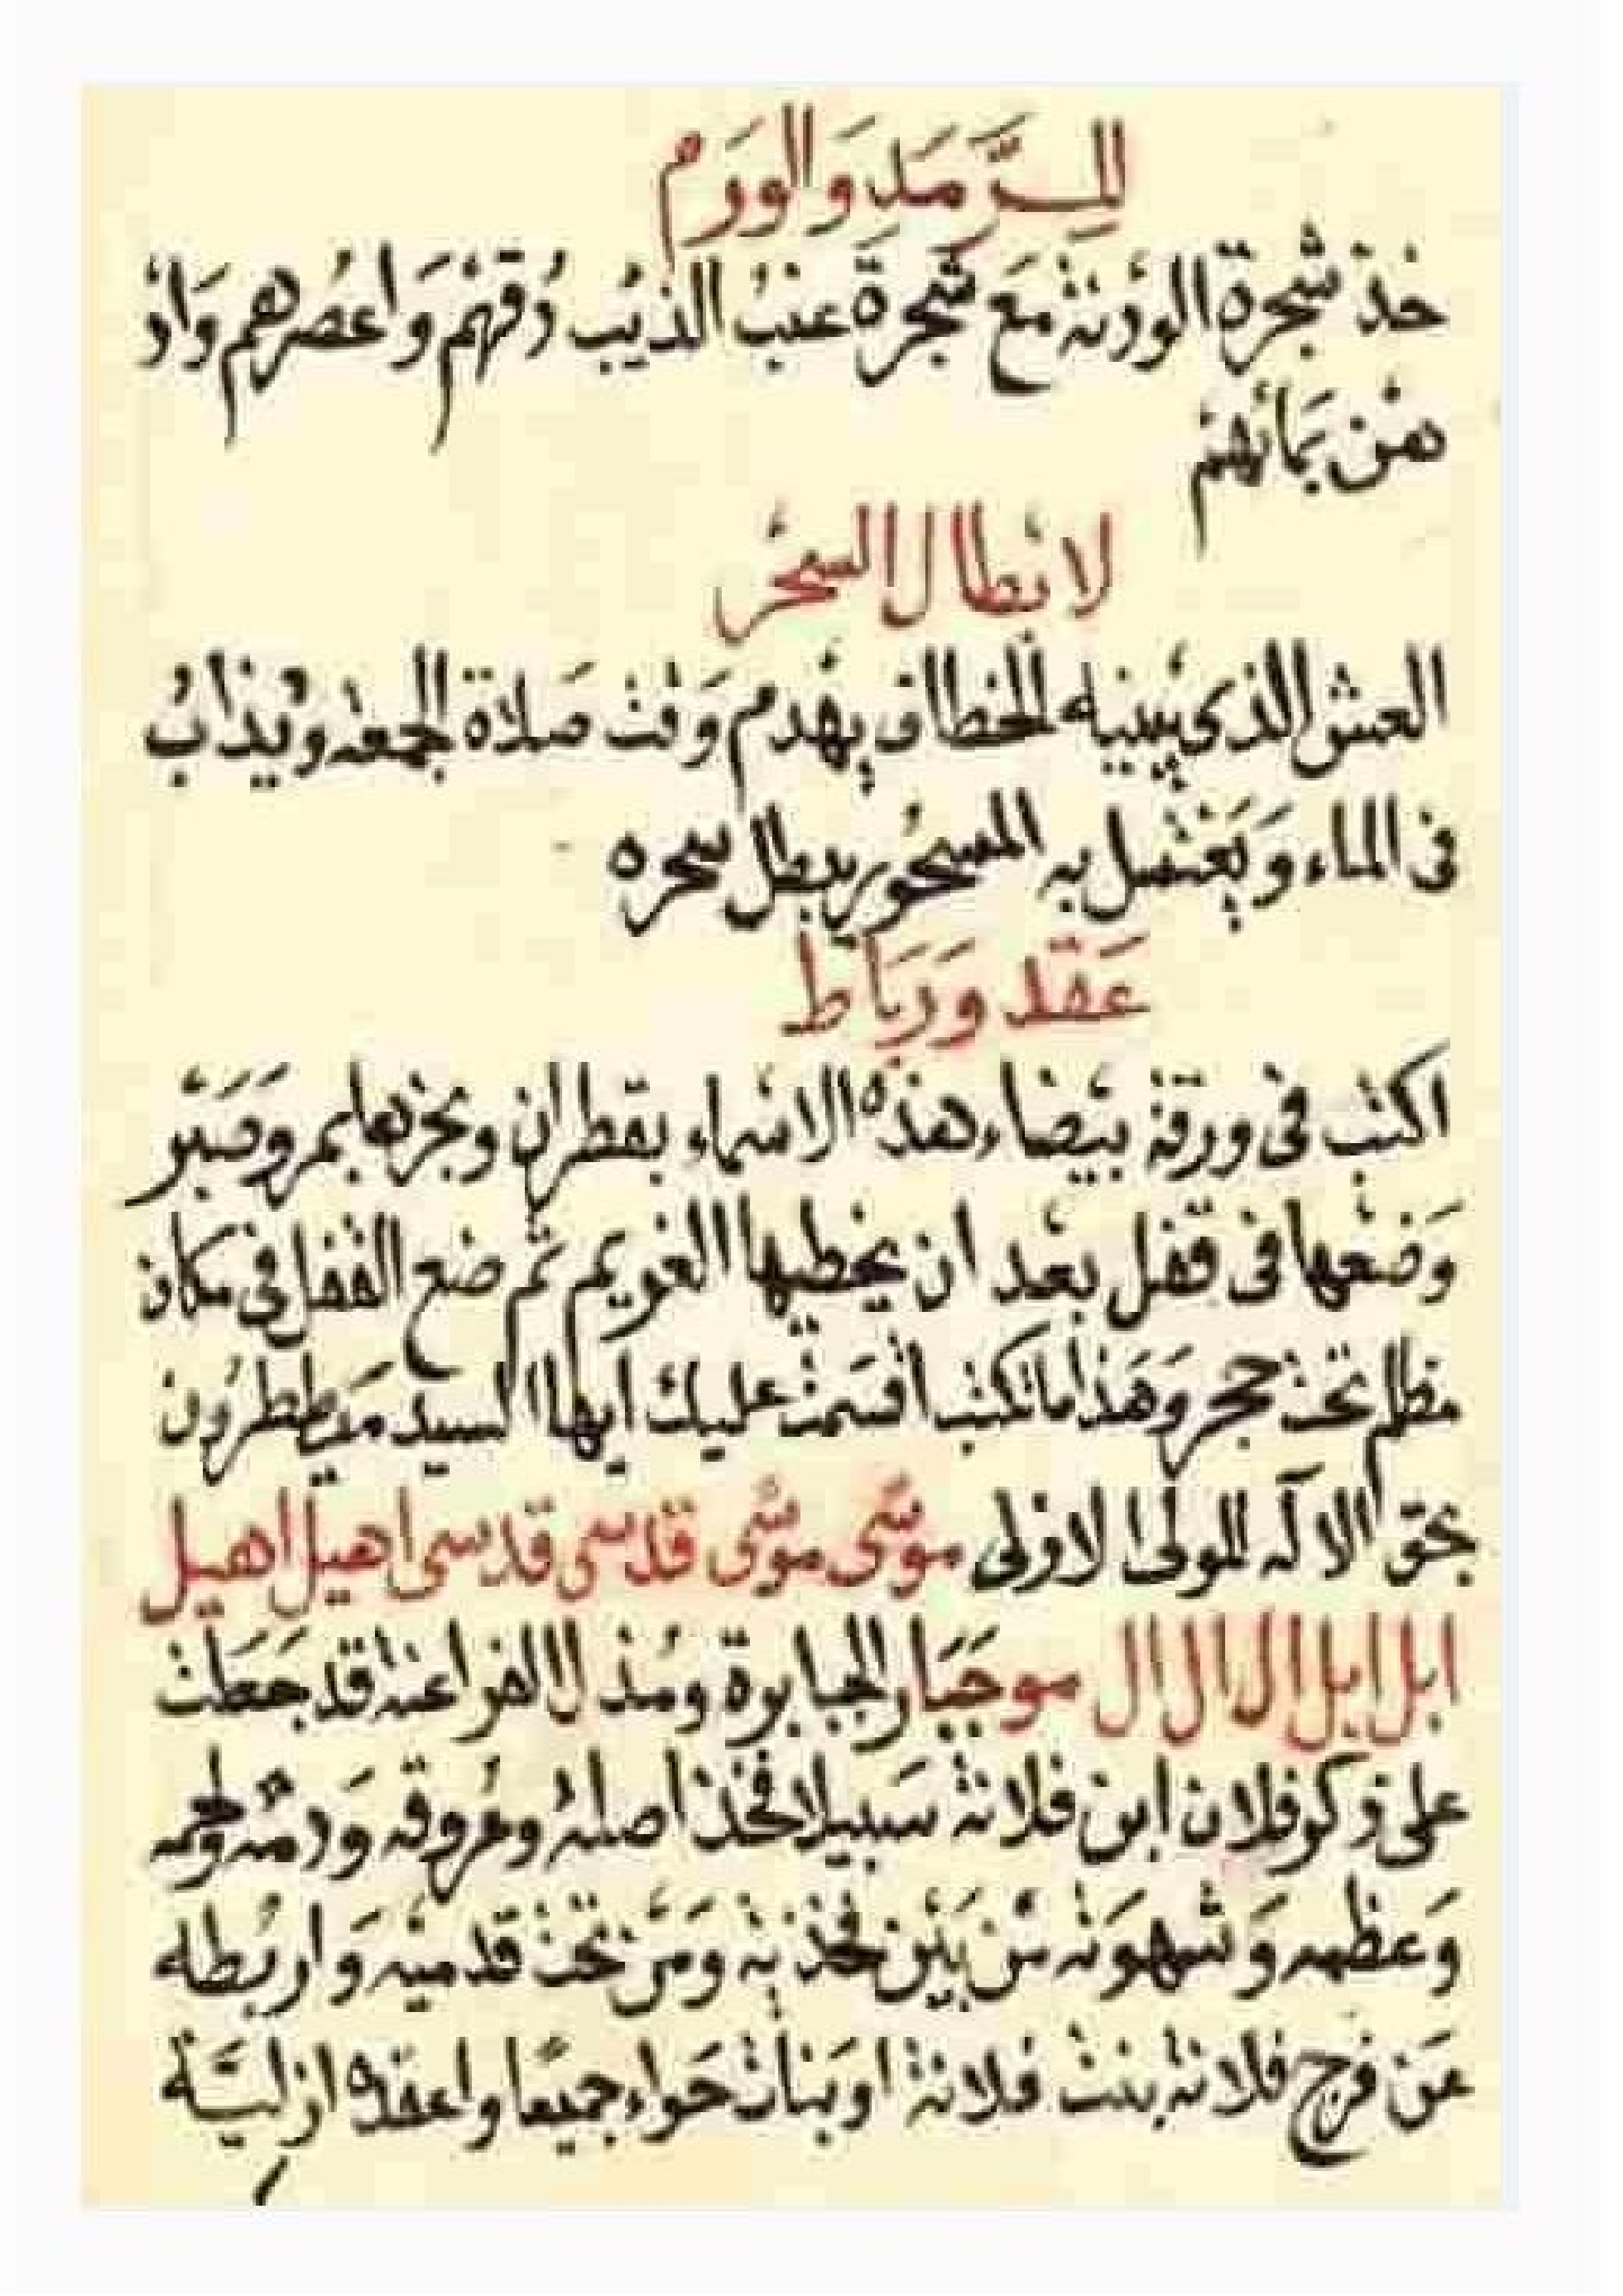 للسَّرمَدِ وَالوَرَم
خذ شجرة الودنة مَع شجرة عنبُ الذيب دُقهُم وَاعصُرهم وَاد
هن بمَائهم
لابطال السحر
العش الذي يبنيه الخطاف يهدم وَقت صَلاة الجمعه ويُذابُ
فى الماء وَيَغتسل به المسحُور يبطل سحره
عَقد وَربَاط
اكتب فى ورقة بيضاء هذه الاسماء بقطران وبخرها بمر وَصَبر
وَضعها فى قفل بعد ان يخطيها الغريم ثم ضع القفل فى مكان
مظلم تحت حجر وَهَذا ما تكتب اقسَمت عليك ايها السيد مَيططرُون
بحق الاله المولى الازلى موسَى موسَى قدسى قدسى اهيل اهيل
ابل ابل ال ال ال موجَبَار الجبابرة ومُذل الفراعنه قد جَعَلت
على ذكر فلان ابن فلانة سَبيلا فخذ اصلهُ وعُروقه وَدمُه ولحمه
وَعظمه وَشهوَته من بَين فخذيه وَمن تحت قدميه وَاربُطه
عَن فرج فلانه بنت فلانة او بَنات حَواء جميعًا واعقده ازليَّة